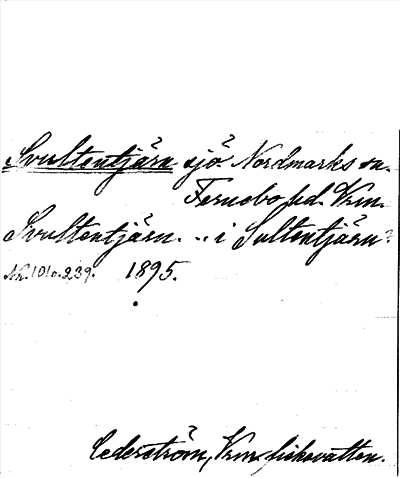 Svultentjärn sjö Nordmarks sn.
Fernebo hd. Vrm.
Svultentjärn. .. i Sultentjärn?
1895.
Cederström, Vrm fiskevatten.